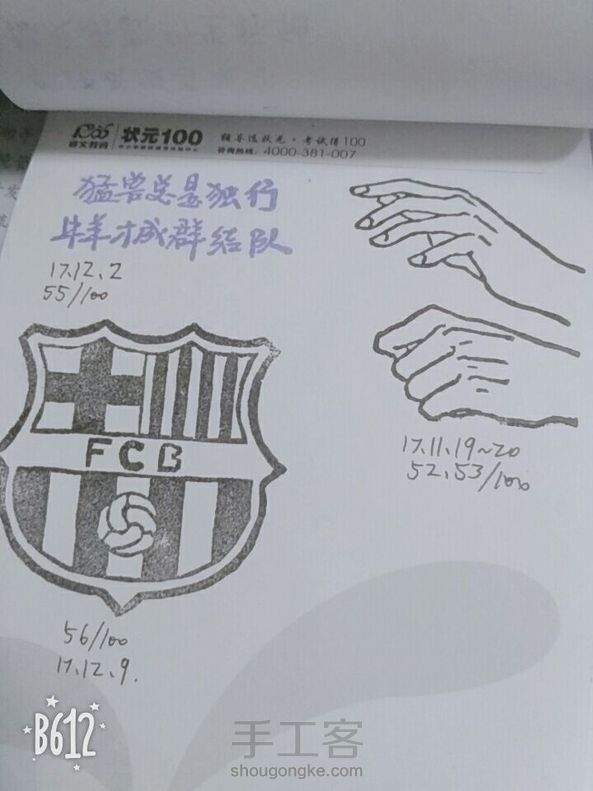 状元100
选状元·考试得100
咨询热线：4000-381-007
猛兽总是独行
牛羊才成群结队
17.12.2
55/100
FCB
17.11.19~20
52.53/100
56/100
17.12.9.
B612
手工客
shougongke.com